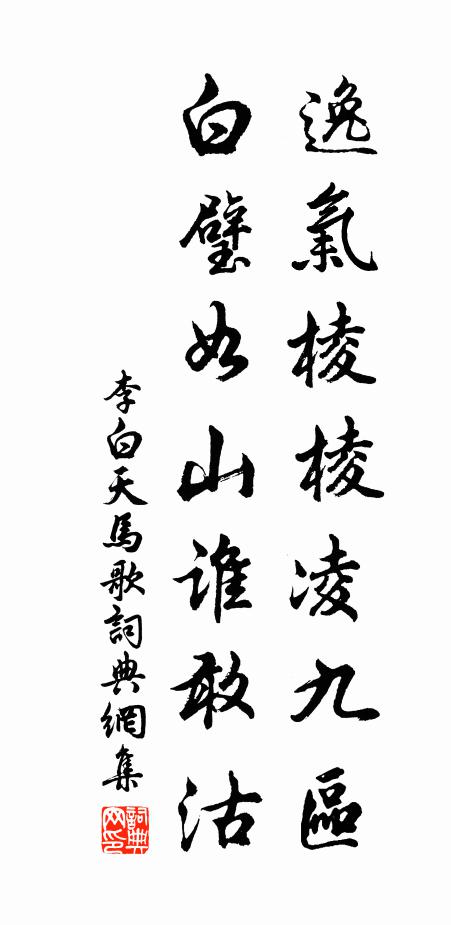 逸氣棱棱凌九區
白璧如山誰敢沽
李白天馬歌詞典網集
詞典網印